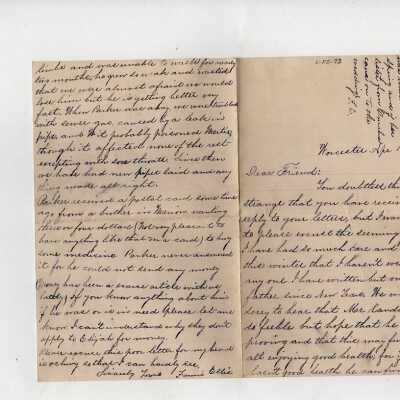 limbs and was unable to walk for nearly
two months, he grew so weak and wasted
that we were almost afraid we would
lose him but he is getting better very
fast. When Parker was away, we were troubled
with sewer gas, caused by a leak in
pipe and it probably poisoned
though it affected none of the rest
excepting with sore throats. Since then
we have had new pipes laid and
thing made all right.
Parker received a postal card some time
ago from a brother in wanting
three or four dollars (Not very pleasant to
have anything like that on a card) to buy
some medicine. Parker never answered
it for he could not send any money
(Money has been a scarce article with us
lately.) If you know anything about him
if he was or is in need please let me
know I can't understand why they don't
apply to Elijah for money.
Please excuse this poor letter for my head
is aching so that I can hardly see,
Sincerely Yours Fannie Ellis
Worcester Apr 1
Dear Friend:
You doubtless th
strange that you have recei
reply to your letters, but I wan
to please excuse the seeming
I have had so much care and
this winter that I haven't
any one I have written but
Father since New Years. We
sorry to hear that Mrs.
so feeble but hope that he
proving and that this may fin
all enjoying good health, for
lacent good health he can